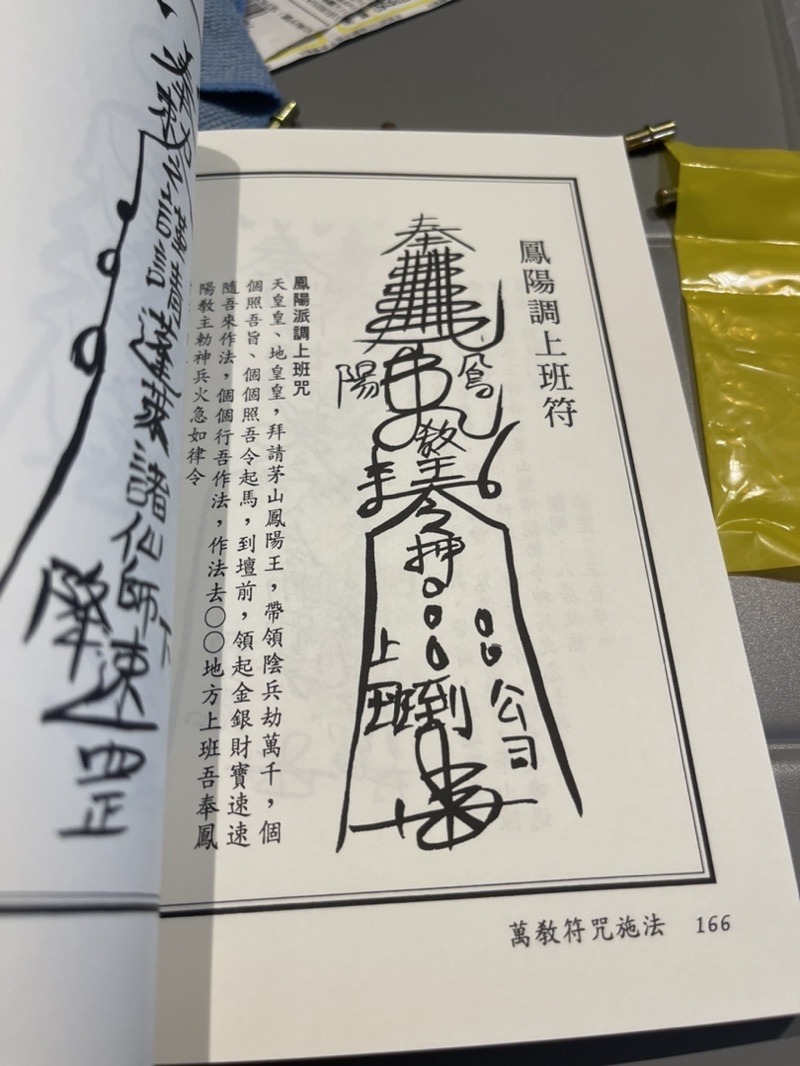 鳳陽調上班符
奉
陽
教主令押
○○公司
上班到
鳳陽派調上班咒
天皇皇、地皇皇，拜請茅山鳳陽王，帶領陰兵劫萬千，個
個照吾旨、個個照吾令起馬，到壇前，領起金銀財寶速速
隨吾來作法，個個行吾作法，作法去○○地方上班吾奉鳳
陽教主勅神兵火急如律令
萬教符咒施法 166
蓬萊諸仙師下
降速罡